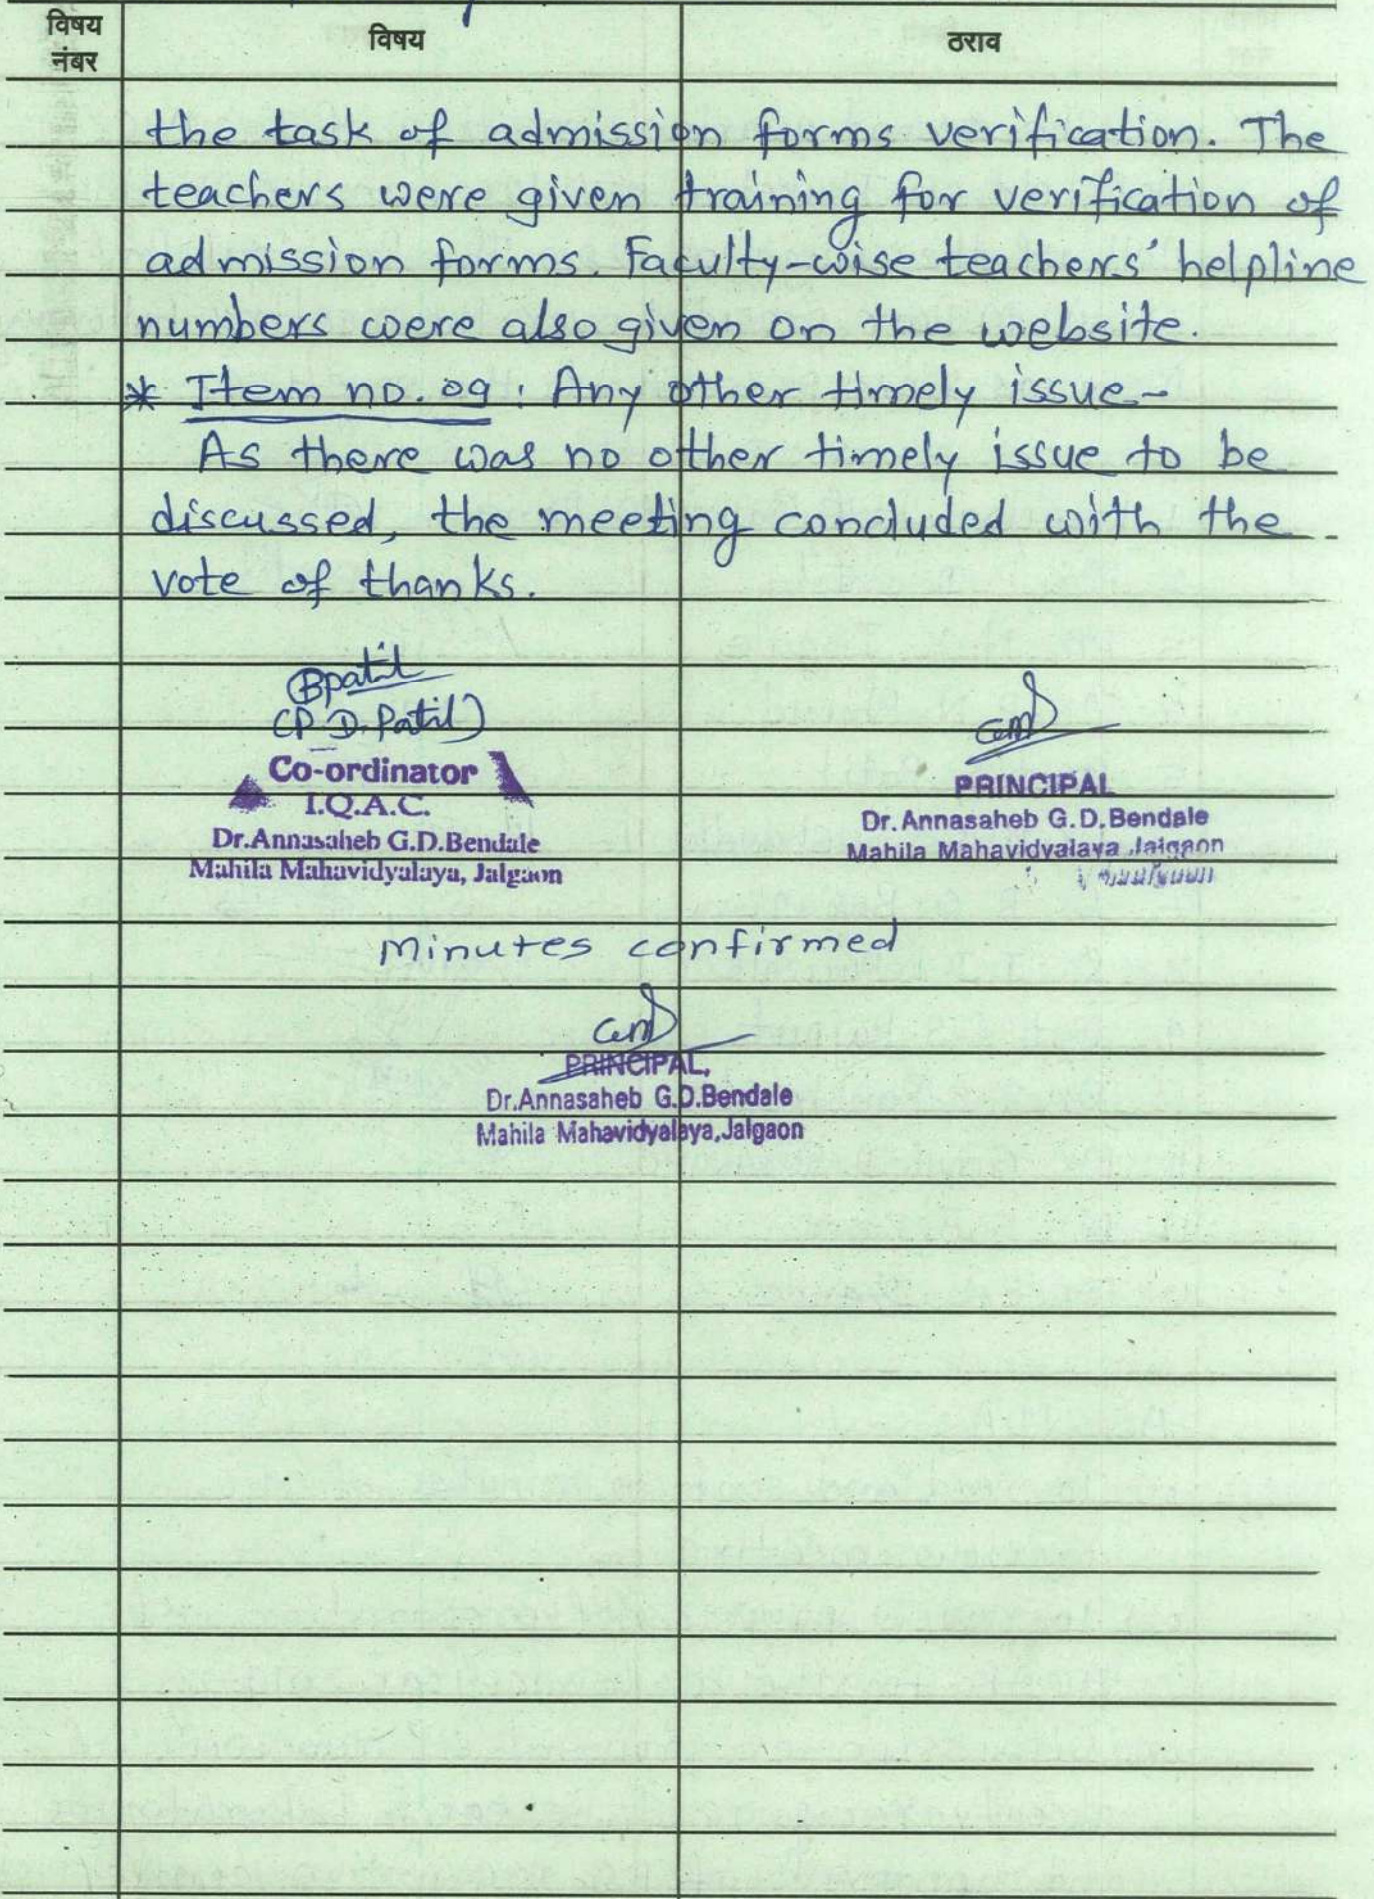 विषय नंबर
विषय
ठराव
the task of admission forms verification. The
teachers were given training for verification of
admission forms. Faculty-wise teachers' helpline
numbers were also given on the website.
* Item no. 09 : Any other timely issue-
As there was no other timely issue to be
discussed, the meeting concluded with the
vote of thanks.
Bpatil
(P. D. Patil)
Co-ordinator
I.Q.A.C.
Dr.Annasaheb G.D.Bendale
Mahila Mahavidyalaya, Jalgaon
PRINCIPAL
Dr.Annasaheb G.D.Bendale
Mahila Mahavidyalaya Jalgaon
Minutes confirmed
PRINCIPAL,
Dr.Annasaheb G.D.Bendale
Mahila Mahavidyalaya,Jalgaon